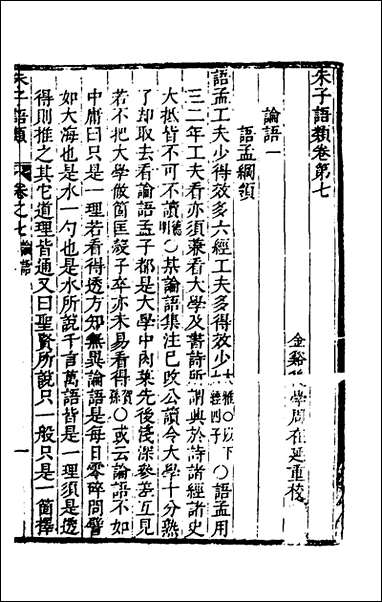 朱子語類卷第七
金谿 學周在延重校
論語一
語孟綱領
語孟工夫少得效多六經工夫多得效少大雅〇以下六經四子〇語孟用
三二年工夫看亦須兼看大學及書詩所謂興於詩諸經諸史
大抵皆不可不讀德明〇某論語集注已改公讀令大學十分熟
了却取去看論語孟子都是大學中肉菜先後淺深參差互見
若不把大學做箇匡殼子卒亦未易看得賀孫〇或云論語不如
中庸曰只是一理若看得透方知無異論語是每日零碎問譬
如大海也是水一勺也是水所說千言萬語皆是一理須是透
得則推之其它道理皆通又曰聖賢所說只一般只是一箇擇
朱子語類
卷之七論語
一